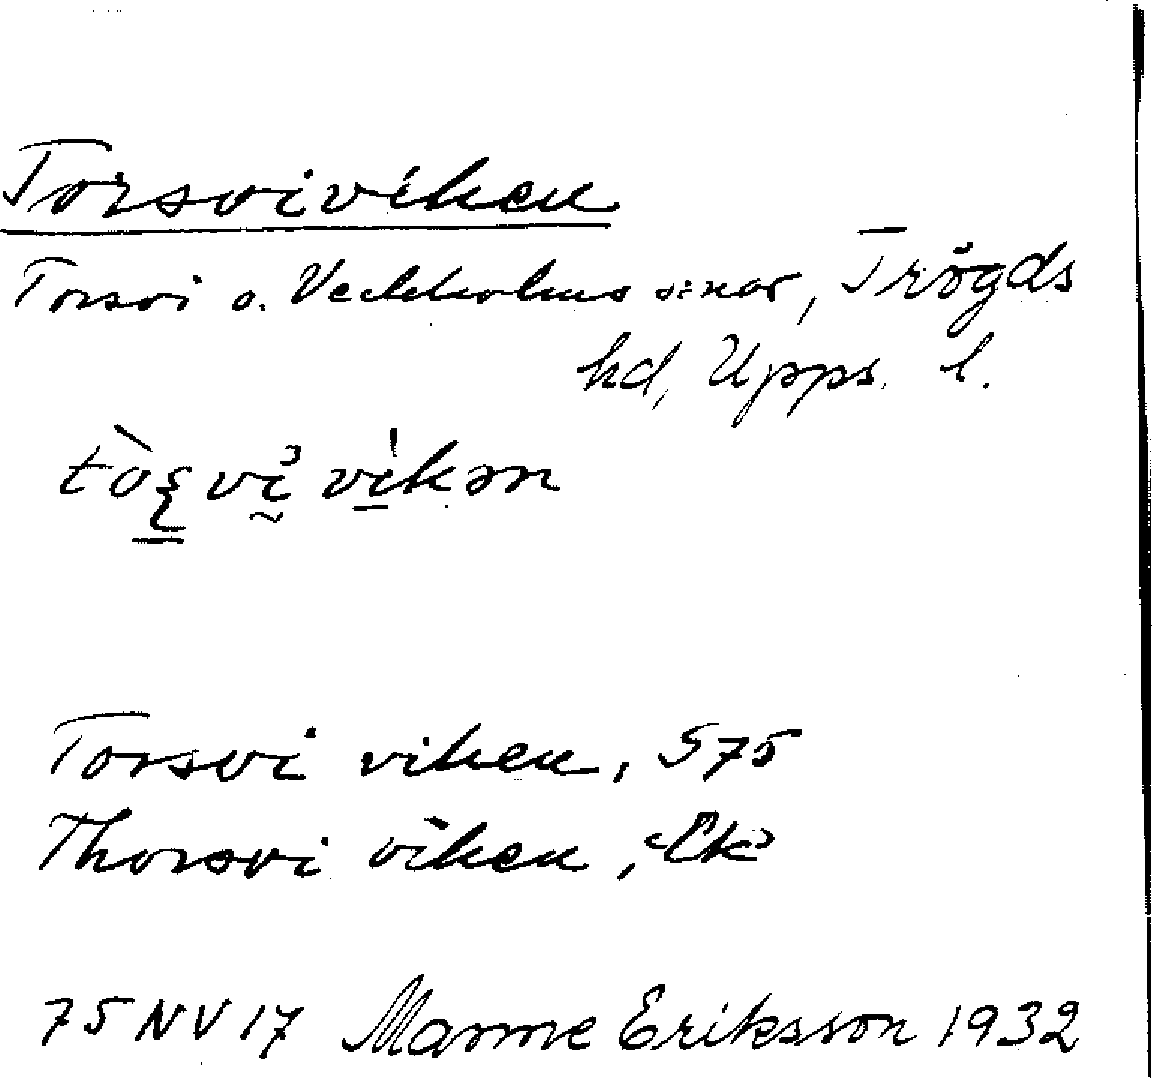 Torsviviken
Torsvi o. Veckholms s:nar, Trögds
hd, Upps. l.
Torsvi viken, S75
Thorsvi viken, Ek
75 NV 17 Manne Eriksson 1932